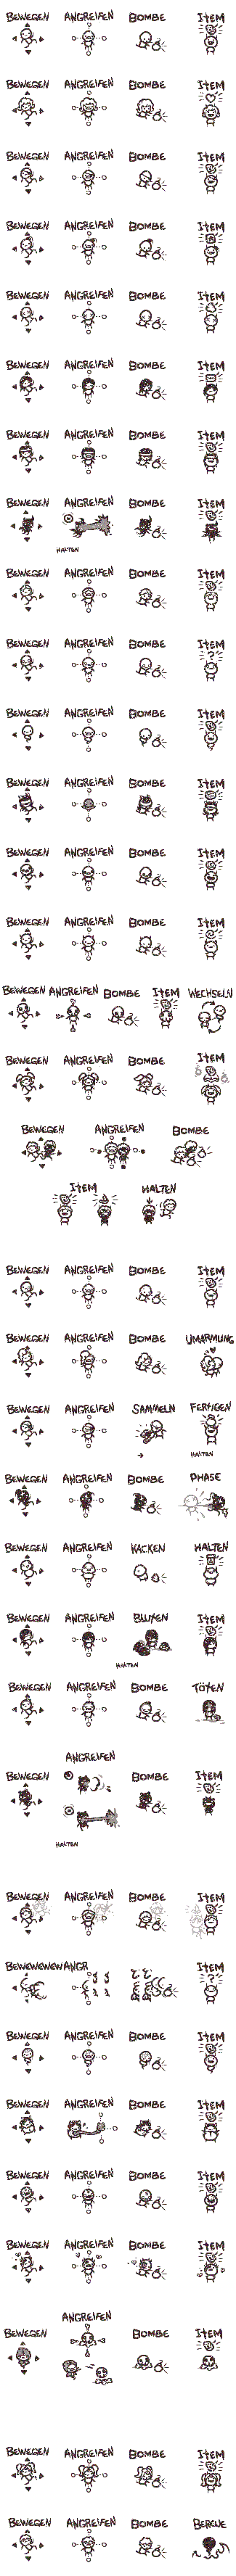 BEWEGEN ANGREIFEN BOMBE ITEM
BEWEGEN ANGREIFEN BOMBE ITEM
BEWEGEN ANGREIFEN BOMBE ITEM
BEWEGEN ANGREIFEN BOMBE ITEM
BEWEGEN ANGREIFEN BOMBE ITEM
BEWEGEN ANGREIFEN BOMBE ITEM
BEWEGEN ANGREIFEN BOMBE ITEM
BEWEGEN ANGREIFEN BOMBE ITEM
HALTEN
BEWEGEN ANGREIFEN BOMBE ITEM
BEWEGEN ANGREIFEN BOMBE ITEM
?
BEWEGEN ANGREIFEN BOMBE ITEM
BEWEGEN ANGREIFEN BOMBE ITEM
BEWEGEN ANGREIFEN BOMBE ITEM
BEWEGEN ANGREIFEN BOMBE ITEM
BEWEGEN ANGREIFEN BOMBE ITEM WECHSELN
BEWEGEN ANGREIFEN BOMBE ITEM
BEWEGEN ANGREIFEN BOMBE
ITEM HALTEN
BEWEGEN ANGREIFEN BOMBE ITEM
BEWEGEN ANGREIFEN BOMBE UMARMUNG
BEWEGEN ANGREIFEN SAMMELN FERTIGEN
HALTEN
BEWEGEN ANGREIFEN BOMBE PHASE
BEWEGEN ANGREIFEN KACKEN HALTEN
BEWEGEN ANGREIFEN BLUTEN ITEM
HALTEN
BEWEGEN ANGREIFEN BOMBE TÖTEN
ANGREIFEN
BEWEGEN BOMBE ITEM
HALTEN
BEWEGEN ANGREIFEN BOMBE ITEM
BEWEWEWEW ANGR ITEM
?
BEWEGEN ANGREIFEN BOMBE ITEM
BEWEGEN ANGREIFEN BOMBE ITEM
BEWEGEN ANGREIFEN BOMBE ITEM
BEWEGEN ANGREIFEN BOMBE ITEM
ANGREIFEN
BEWEGEN BOMBE ITEM
BEWEGEN ANGREIFEN BOMBE ITEM
BEWEGEN ANGREIFEN BOMBE